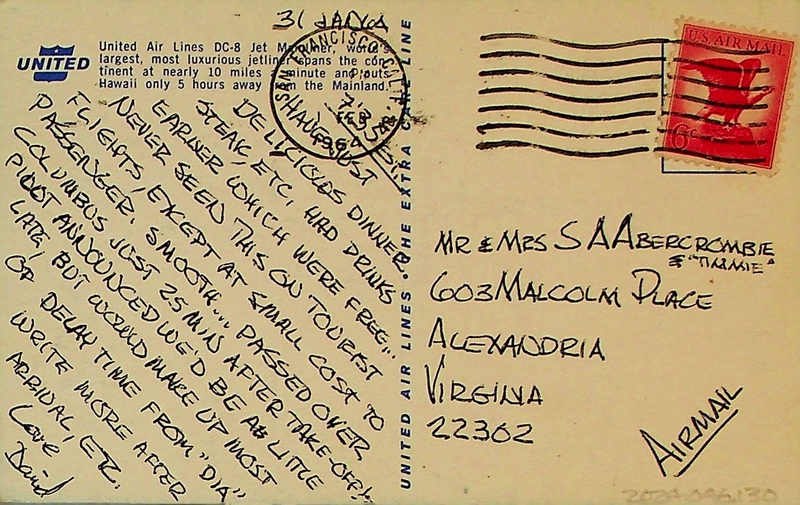 31 JAN 64
UNITED
United Air Lines DC-8 Jet Mainliner, world's
largest, most luxurious jetliner spans the con-
tinent at nearly 10 miles a minute and puts
Hawaii only 5 hours away from the Mainland.
SAN FRANCISCO, CALIF.
PM
FEB
1964
U.S. AIR MAIL
6c
HAVE JUST
DELICIOUS DINNER,
STEAK, ETC. HAD DRINKS
EARLIER WHICH WERE FREE...
NEVER SEEN THIS ON TOURIST
FLIGHTS, EXCEPT AT SMALL COST TO
PASSENGER. SMOOTH... PASSED OVER
COLUMBUS JUST 25 MIN AFTER TAKE-OFF!
PILOT ANNOUNCED WE'D BE A LITTLE
LATE, BUT WOULD MAKE UP MOST
OF DELAY TIME FROM "DIA"
WRITE MORE AFTER
ARRIVAL, ETC.
Love
David
UNITED AIR LINES • THE EXTRA CARE AIR LINE
MR & MRS S A ABERCROMBIE
& "TIMMIE"
603 MALCOLM PLACE
ALEXANDRIA
VIRGINIA
22302
AIRMAIL
2024.046.130